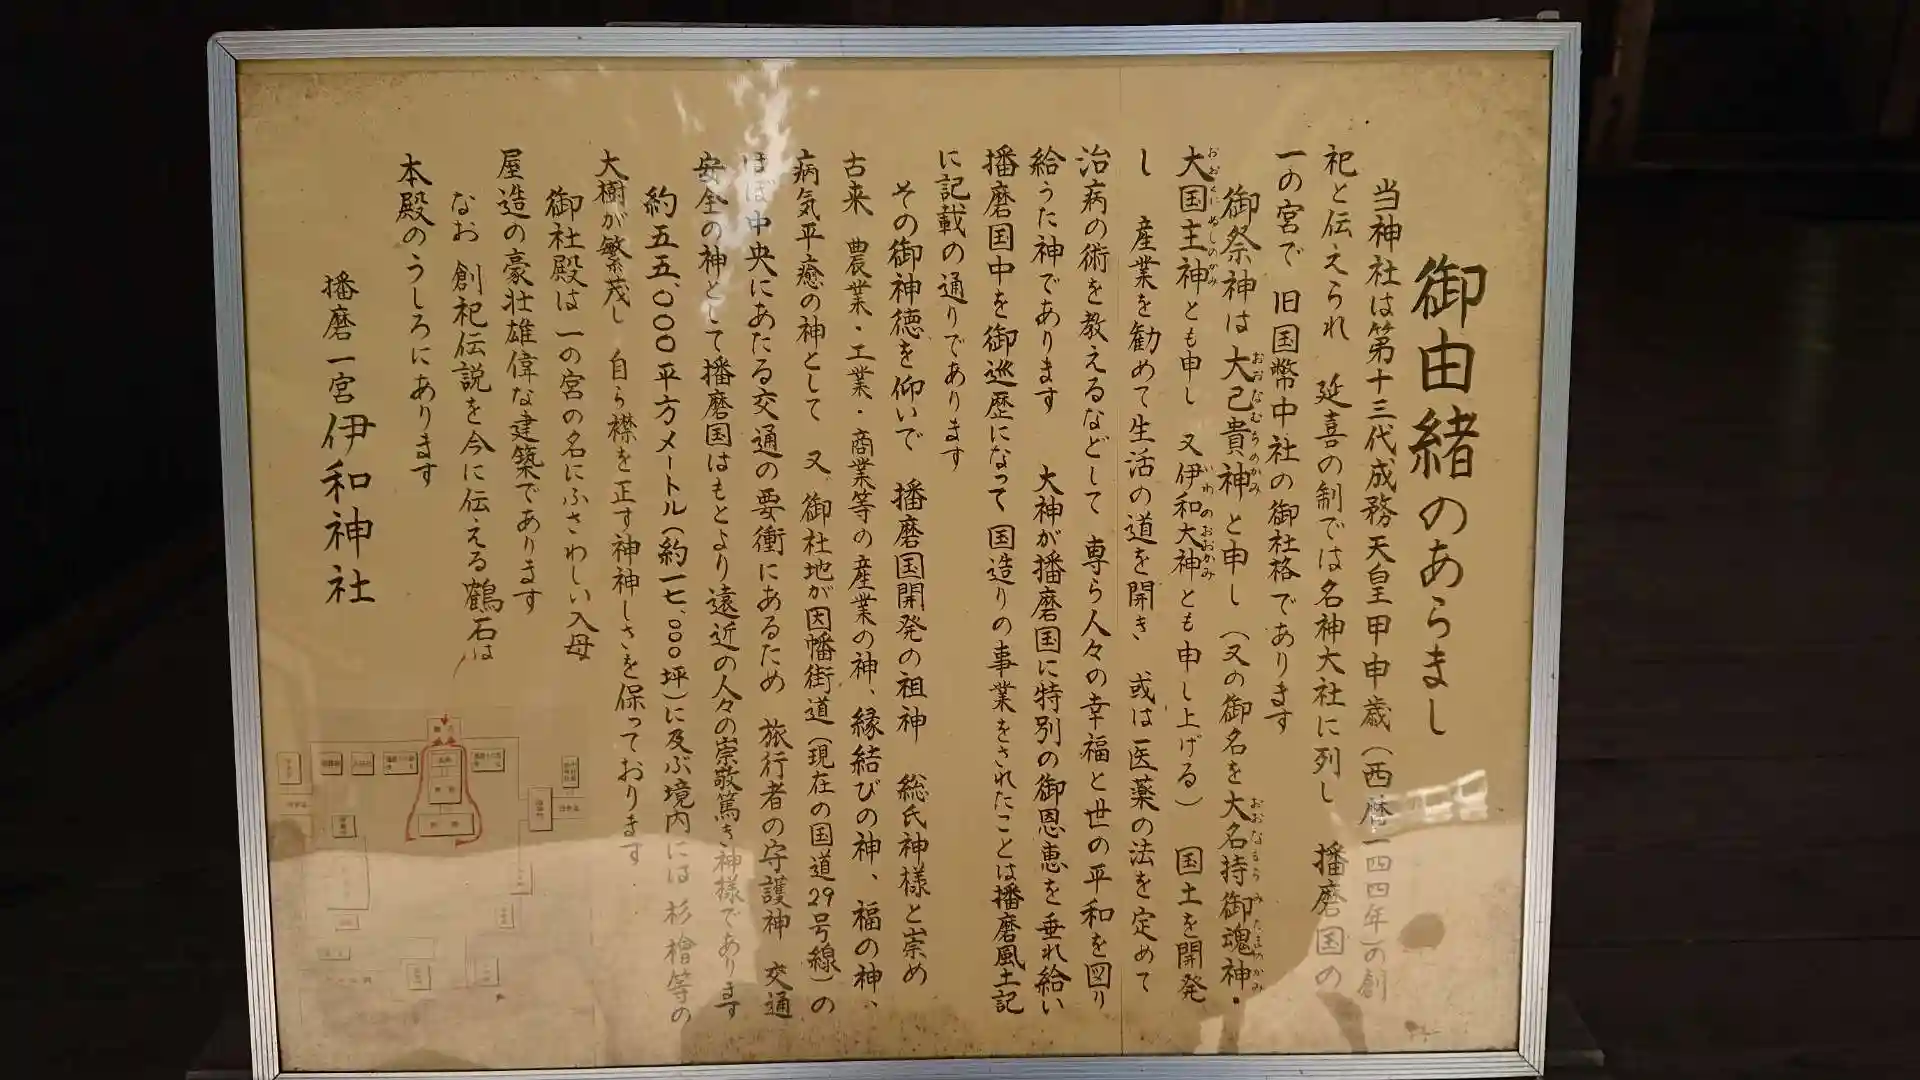 御由緒のあらまし
当神社は第十三代成務天皇甲申歳(西暦一四四年)の創
祀と伝えられ 延喜の制では名神大社に列し 播磨国の
一の宮で 旧国幣中社の御社格であります
御祭神は大己貴神と申し(又の御名を大名持御魂神・
大国主神とも申し 又伊和大神とも申し上げる) 国土を開発
し 産業を勧めて生活の道を開き 或は医薬の法を定めて
治病の術を教えるなどして 専ら人々の幸福と世の平和を図り
給うた神であります 大神が播磨国に特別の御恩恵を垂れ給い
播磨国中を御巡歴になって 国造りの事業をされたことは播磨風土記
に記載の通りであります
その御神徳を仰いで 播磨国開発の祖神 総氏神様と崇め
古来 農業・工業・商業等の産業の神、縁結びの神、福の神、
病気平癒の神として 又 御社地が因幡街道(現在の国道29号線)の
ほぼ中央にあたる交通の要衝にあるため 旅行者の守護神 交通
安全の神として播磨国はもとより遠近の人々の崇敬篤き神様であります
約五五、〇〇〇平方メートル(約一七、〇〇〇坪)に及ぶ境内には杉檜等の
大樹が繁茂し 自ら襟を正す神神しさを保っております
御社殿は一の宮の名にふさわしい入母
屋造の豪壮雄偉な建築であります
なお 創祀伝説を今に伝える鶴石は
本殿のうしろにあります
播磨一宮 伊和神社